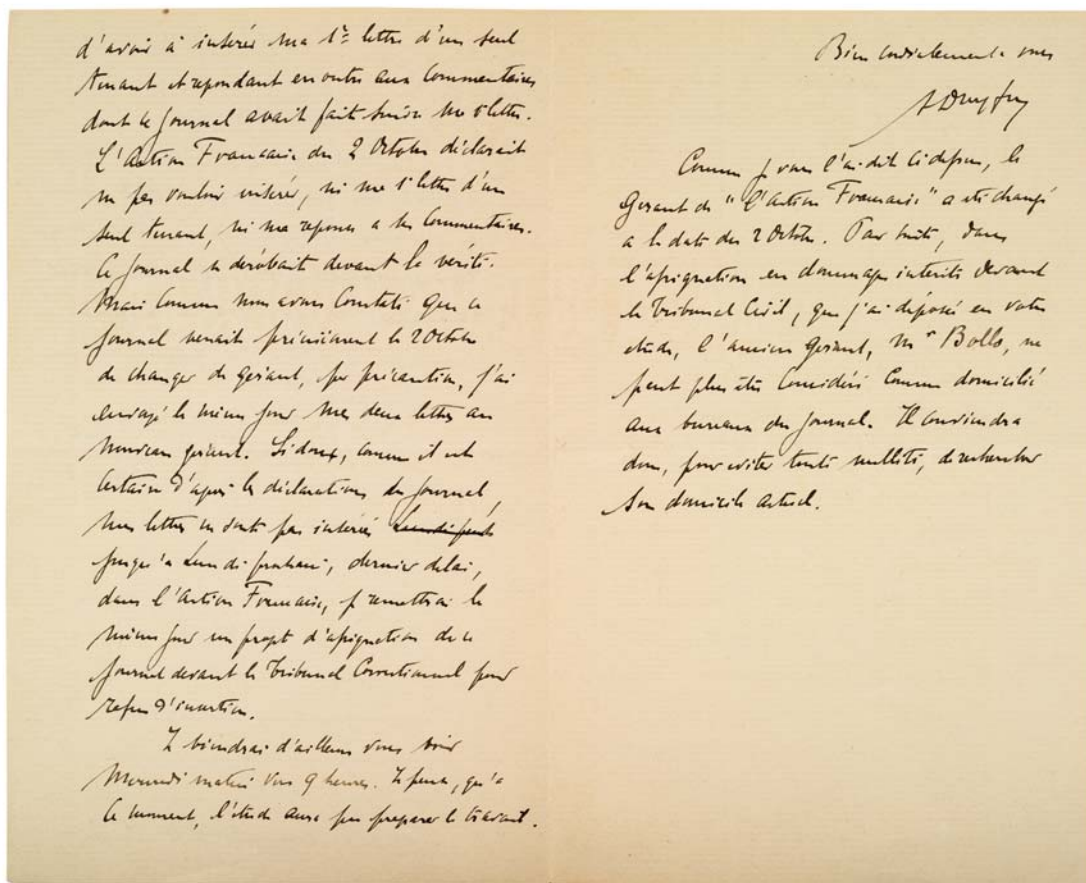 d'avoir à insérer ma 1re lettre d'un seul
tenant et répondant en outre aux commentaires
dont le journal avait fait suivre ma 1e lettre.
L'Action Francaise du 2 Octobre déclarait
ne pas vouloir insérer, ni ma 1e lettre d'un
seul tenant, ni ma reponse a ses Commentaires.
Ce journal se dérobait devant la vérité.
Mais comme nous avons constaté que ce
journal venait précisément le 2 Octobre
de changer de gérant, par précaution, j'ai
envoyé le même jour mes deux lettres au
nouveau gérant. Si donc, comme il est
certain d'après les déclarations du journal,
mes lettres ne sont pas insérées
jusqu'a Lundi prochain, dernier délai,
dans l'Action Francaise, je remettrai le
même jour un projet d'assignation de ce
journal devant le Tribunal Correctionnel pour
refus d'insertion.
Je viendrai d'ailleurs vous voir
Mercredi matin vers 9 heures. Je pense, qu'a
ce moment, l'étude aura pu preparer le travail.
Bien cordialement a vous
A Dreyfus
Comme je vous l'ai dit ci dessus, le
Gérant de "l'Action Francaise" a été changé
a la date du 2 Octobre. Par suite, dans
l'assignation en dommages intérêts devant
le Tribunal Civil, que j'ai déposé en votre
etude, l'ancien Gérant, Mr Bollo, ne
peut plus être considéré comme domicilié
aux bureaux du journal. Il conviendra
donc, pour eviter toute nullité, de rechercher
son domicile actuel.